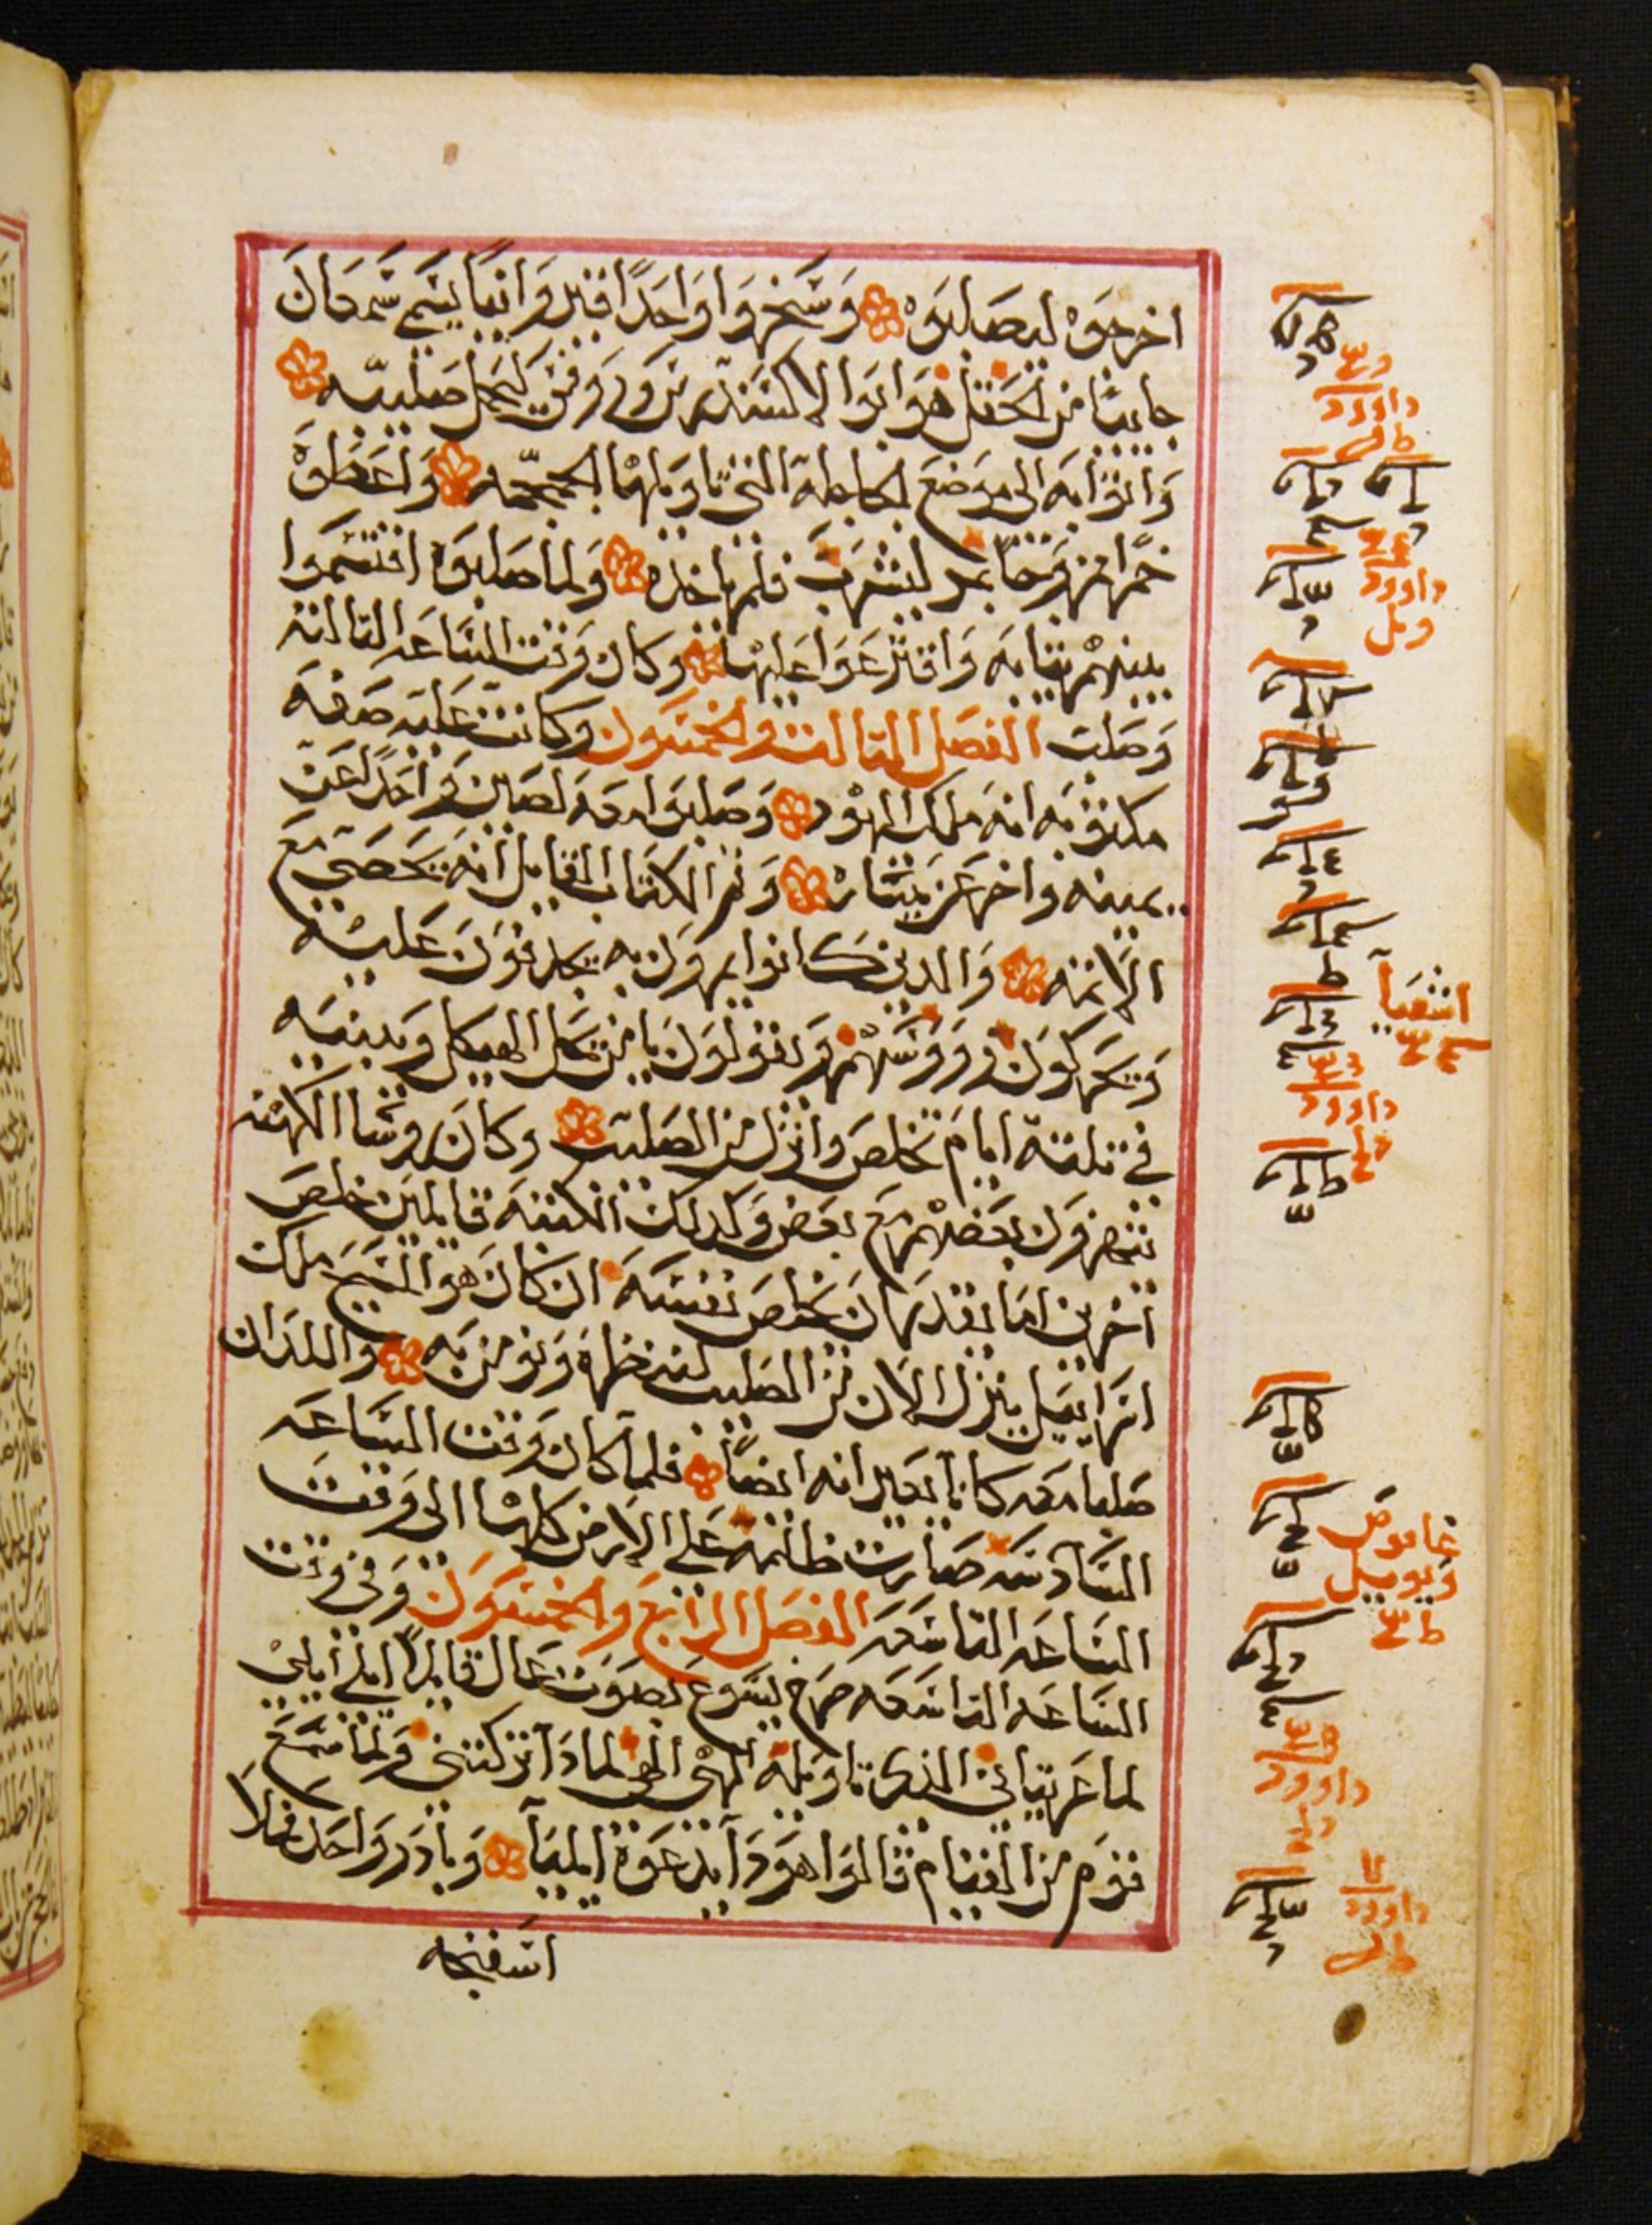 اخرجوه ليصلبوه وسخروا واحدا قيروانيا يسمى سمعان
جايتا من الحقل هو ابوا الاكسندرس وروفس ليحمل صليبه
واتوا به الى موضع الجاجلة التي تاويلها الجمجمه واعطوه
خمرا ممزوجا بمر ليشرب فلم ياخذه ولما صلبوه اقتسموا
بينهم ثيابه واقترعوا عليها وكان وقت الساعه التالته
وصلب الفصل التالت والخمسون وكانت علته صفه
مكتوبه انه ملك اليهود وصلبوا معه لصين واحدا عن
يمينه واخر عن يساره وتم الكتاب القايل انه يحصى مع
الاتمه والدين كانوا يمرون به يجدفون عليه
ويحركون رووسهم ويقولون يا من يحل الهيكل ويبنيه
في تلتة ايام تخلص وانزل من الصليب وكان روسا الكهنه
يتهزون بعضهم مع بعض وكدلك الكتبه قايلين خلص
آخرين اما يقدر ان يخلص نفسه ان كان هو المسيح ملك
اسراييل ينزل الان من الصليب لننظره ونومن به واللدان
صلبا معه كانا يعيرانه ايضا فلما كان وقت الساعه
السادسه صارت ظلمه على الارض كلها الى وقت
الساعه التاسعه الفصل الرابع والخمسون وفى وقت
الساعه التاسعه صرخ يسوع بصوت عال قايلا ايلي ايلي
لما عزبتاني الذي تاويله الهي الهي لمادا تركتني ولما سمع
قوم من القيام قالوا هودا يدعوا ايليا وبادر واحد فملا
اسفنجه
داوود
داوود
اشعيا
داوود
عاموص
ويوييل
داوود
داوود